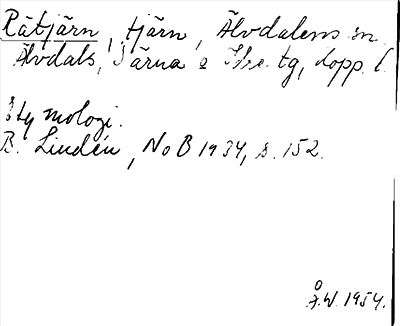 Råtjärn, tjärn, Älvdalens sn
Älvdals, Särna o Idre tg, Kopp. l.
Etymologi.
B. Lindén, NoB 1934, s. 152.
Å.W. 1954.